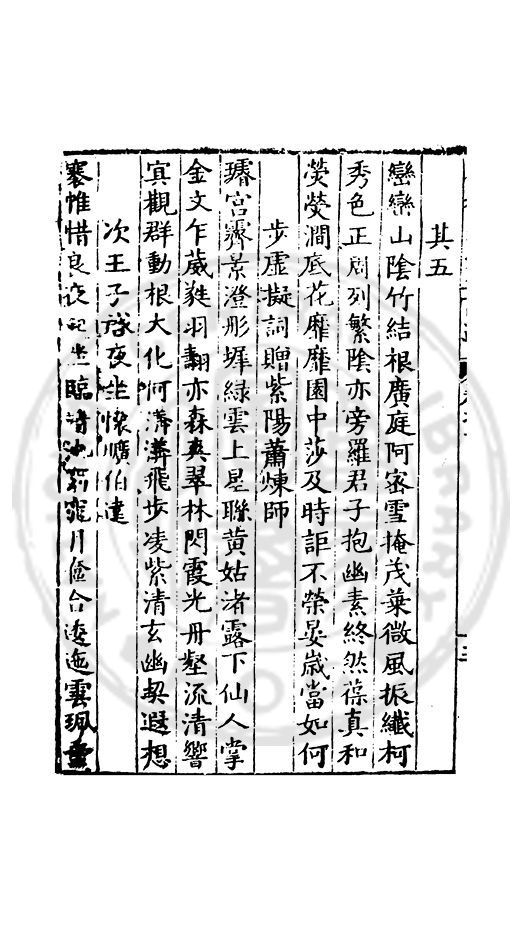 其五
巒巒山陰竹結根廣庭阿密雪掩茂葉微風振纖柯
秀色正周列繁陰亦旁羅君子抱幽素終然葆真和
熒熒澗底花靡靡園中莎及時詎不榮晏歲當如何
步虛擬詞贈紫陽蕭煉師
璿宮霽景澄彤墀綠雲上星聯黄姑渚露下仙人掌
金文乍葳蕤羽翿亦森爽翠林閃霞光丹壑流清響
寘觀群動根大化何溝溝飛步凌紫清玄幽契遐想
次王子啓夜坐懷曠伯逵
褰帷惜良夜起坐臨月低合逶迤雲珮重